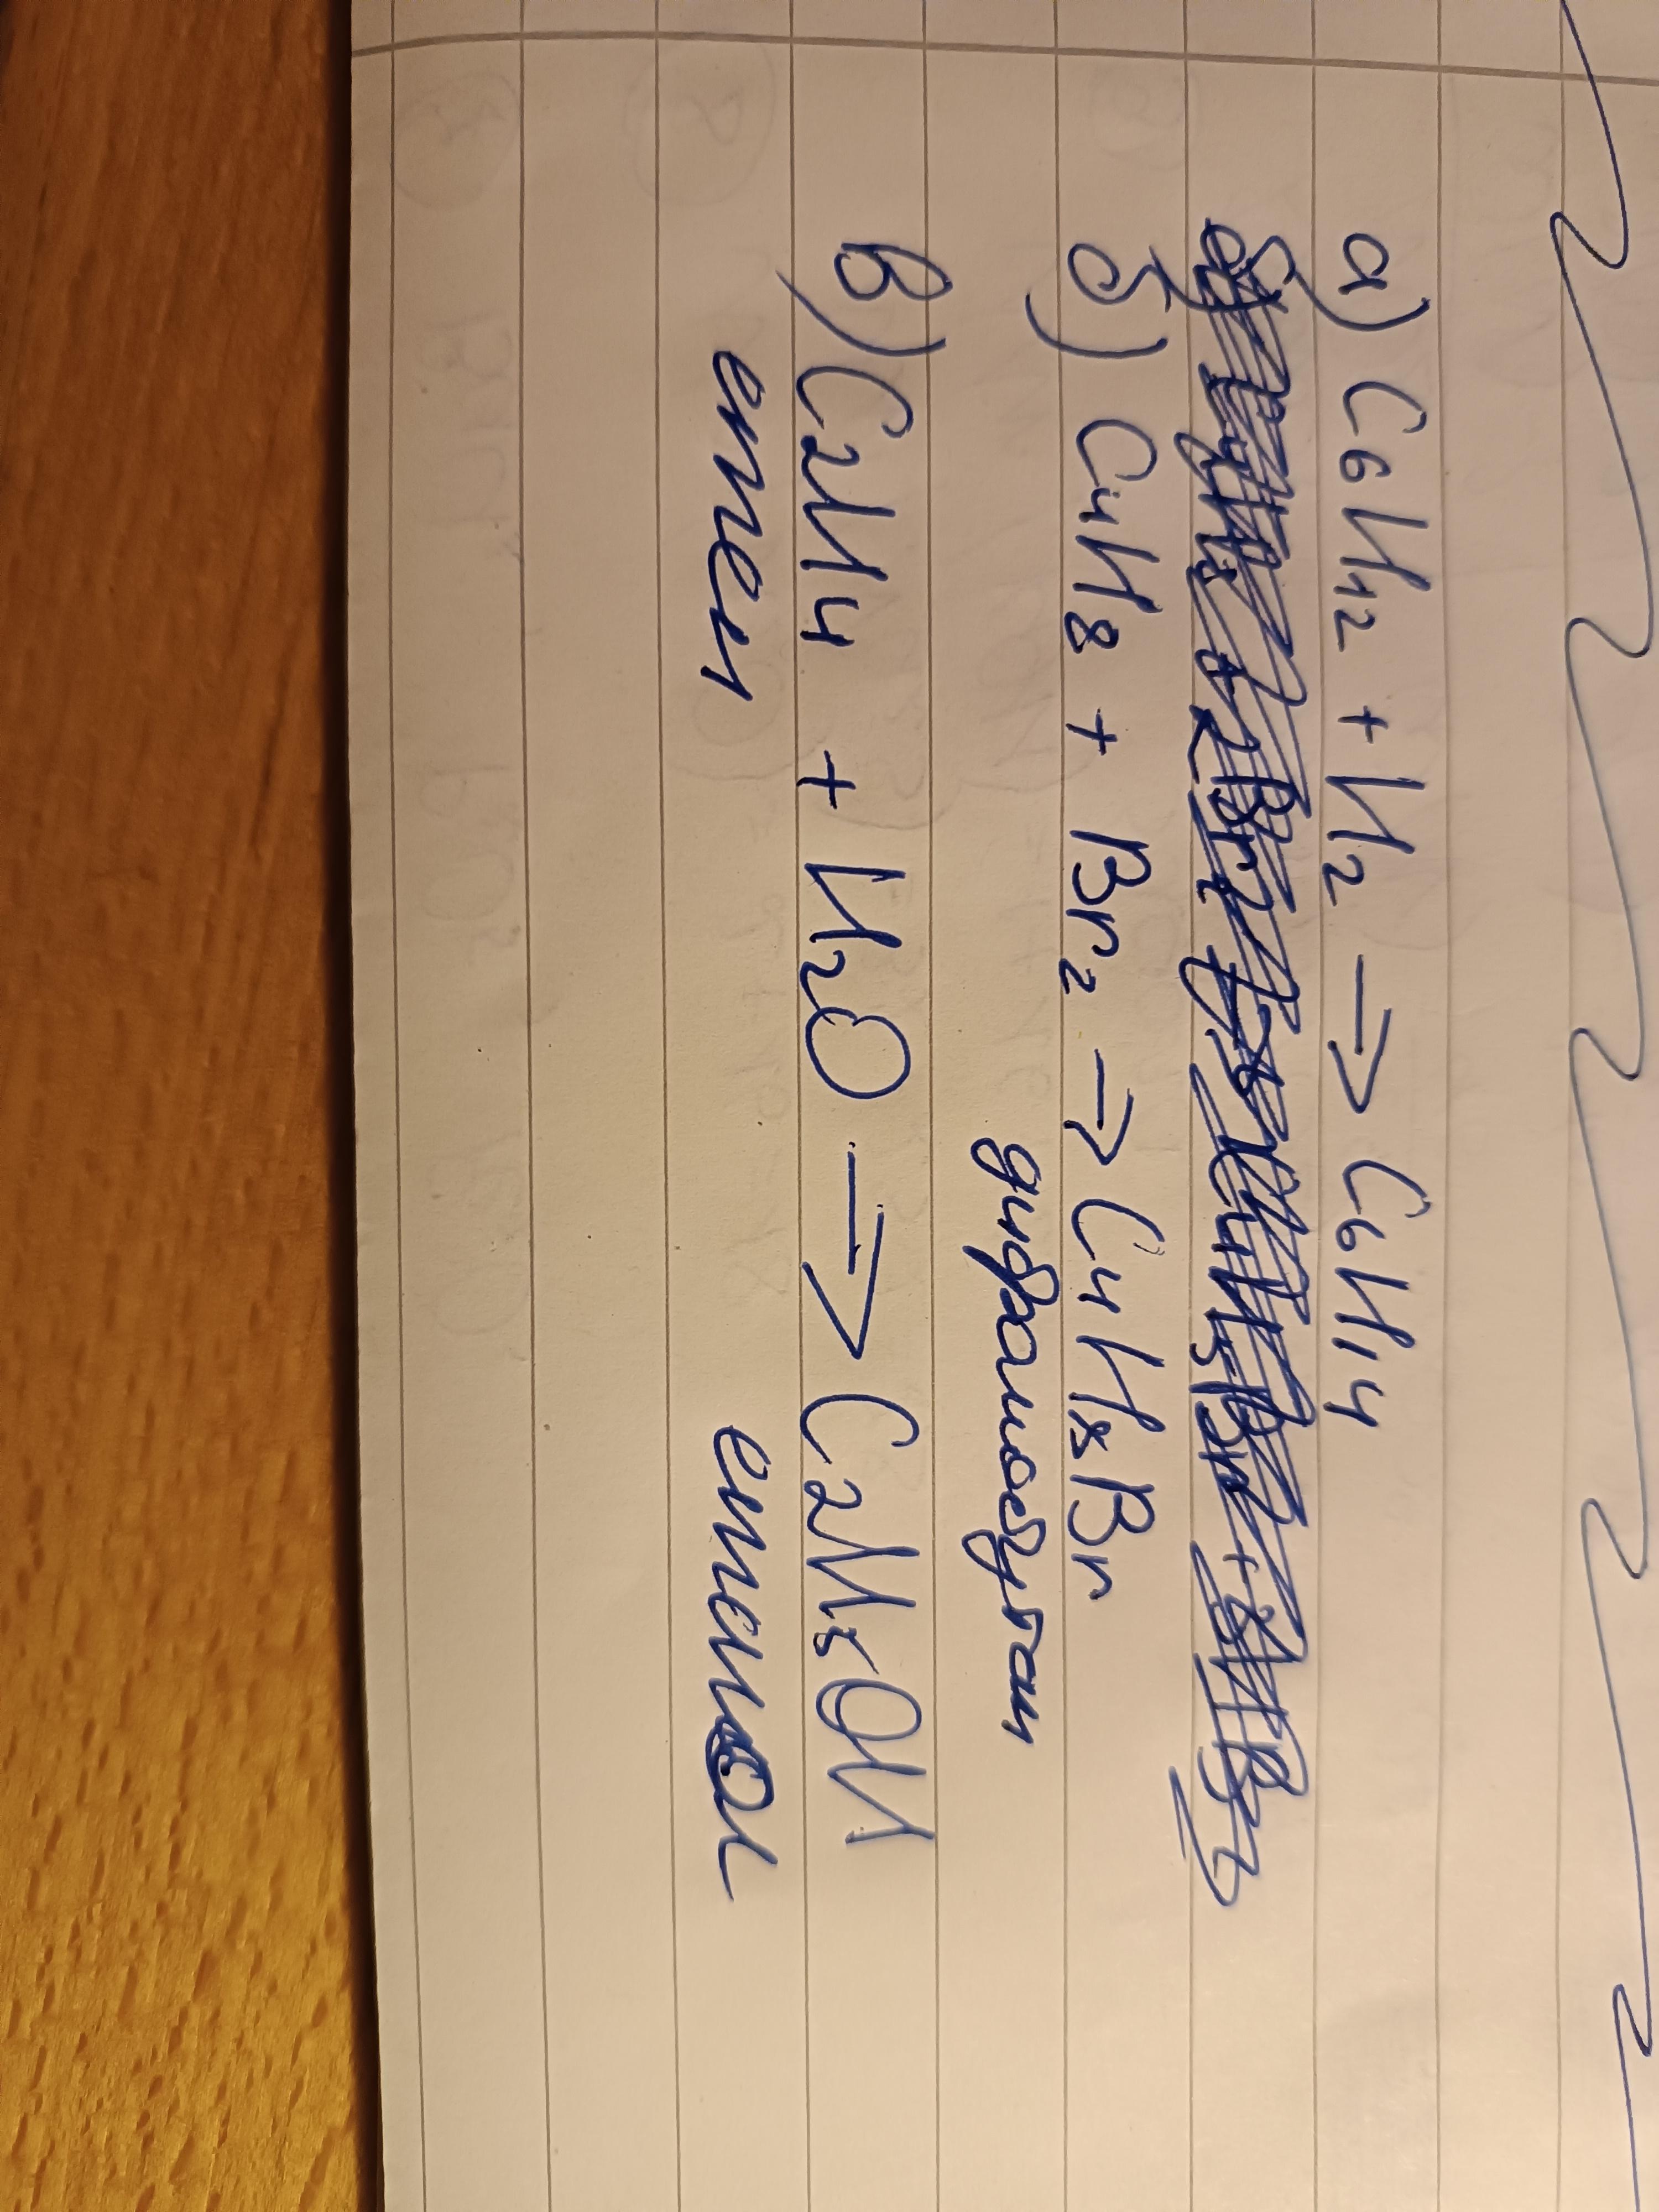 а) C6H12 + H2 → C6H14
б) C4H8 + Br2 → C4H8Br
дибромобутан
в) C2H4 + H2O → C2H5OH
етен етанол